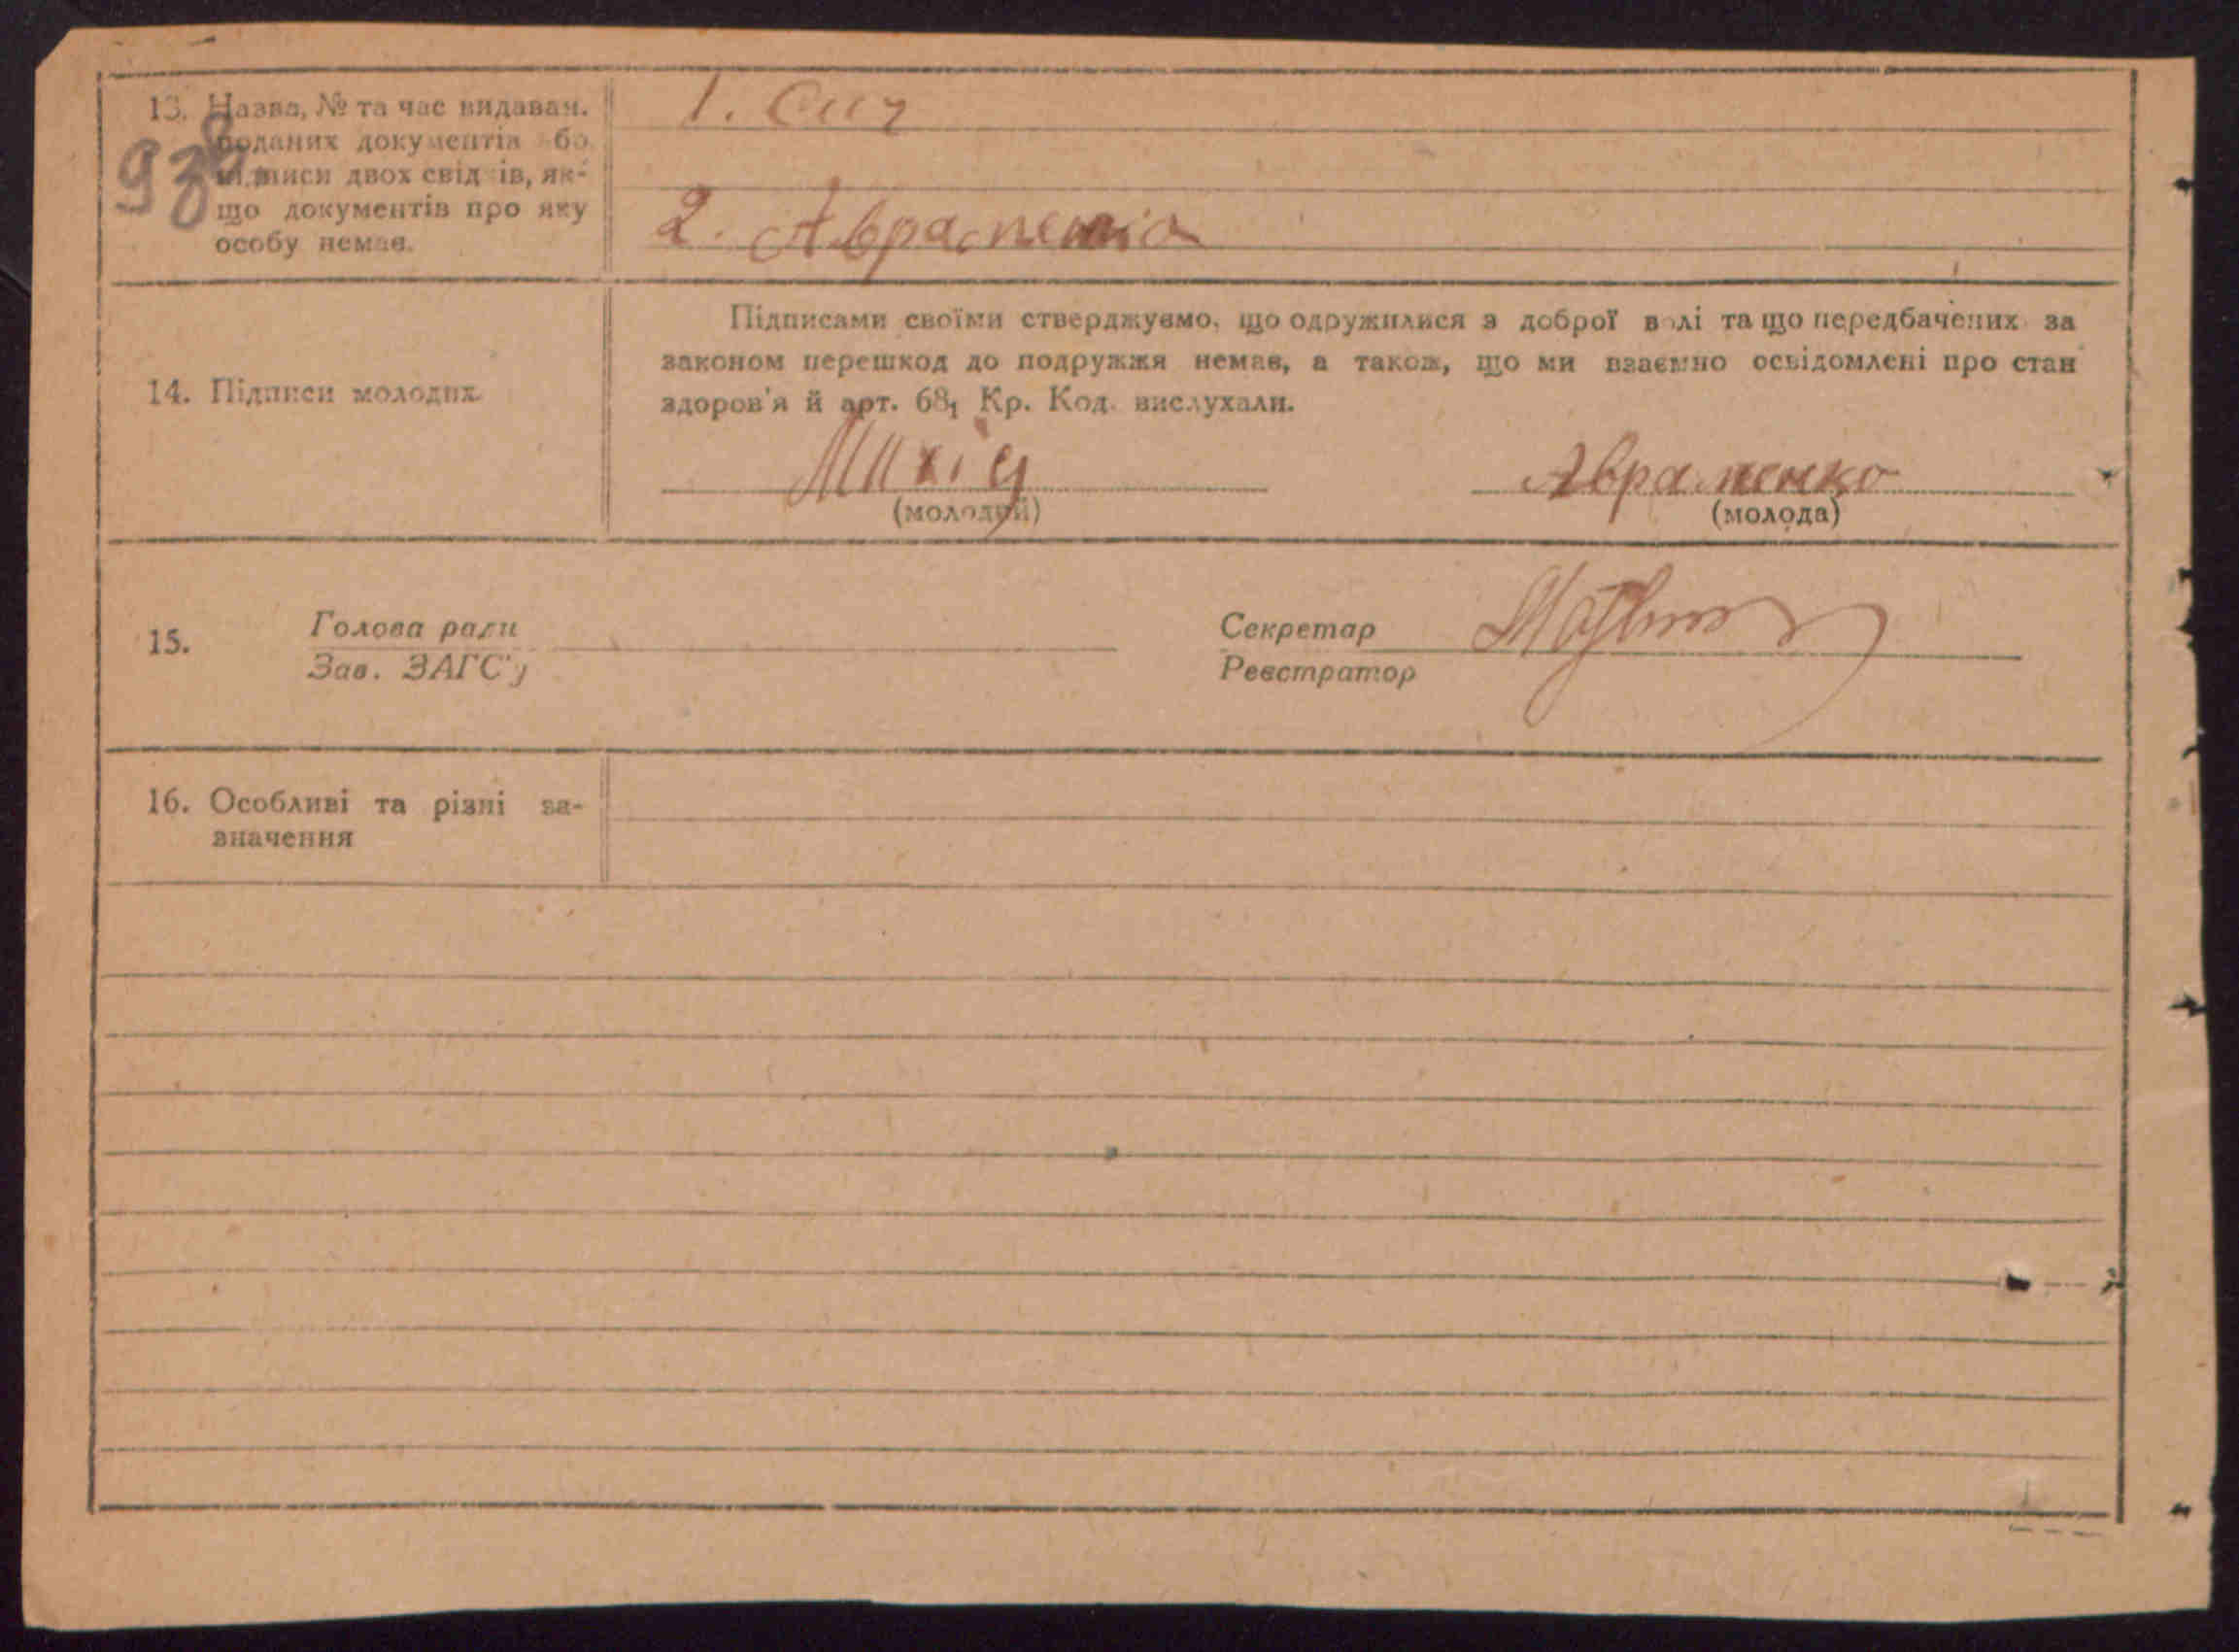 13. Назва, № та час видаван.
поданих документів або
підписи двох свідків, як-
що документів про яку
особу немає.
1. Сич
2.
93
14. Підписи молодих.
Підписами своїми стверджуємо, що одружилися з доброї волі та що передбачених за
законом перешкод до подружжя немає, а також, що ми взаємно освідомлені про стан
здоров'я й арт. 68₁ Кр. Код. вислухали.
Авраменко
(молодий) (молода)
15. Голова ради Секретар
Зав. ЗАГС'у Реєстратор
16. Особливі та різні за-
значення